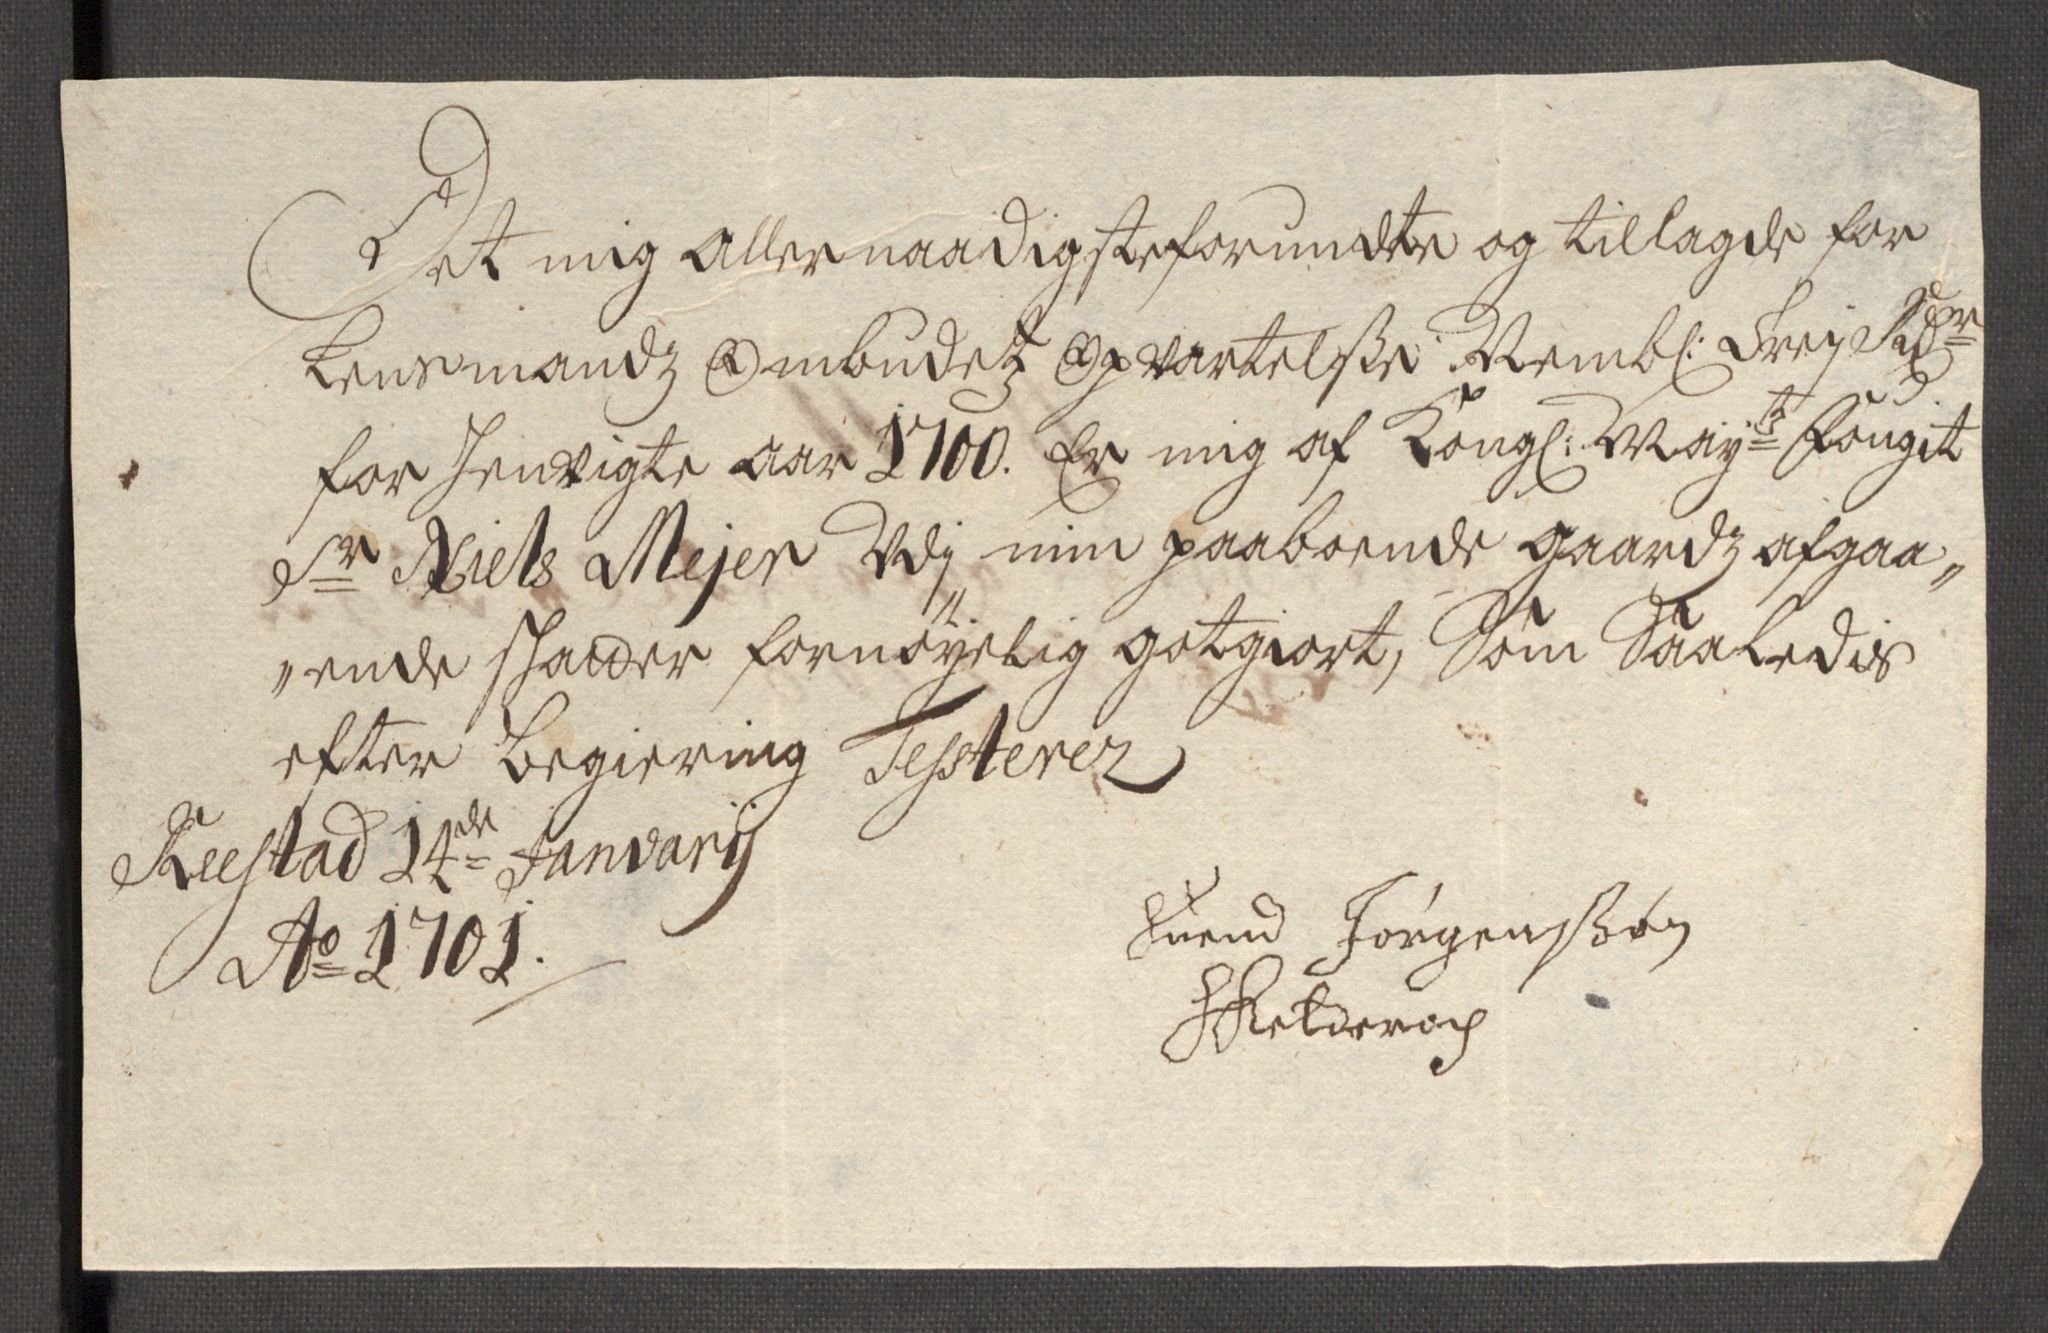 Det mig allernaadigste forundte og tillagde for
Lensmandz Ombudetz Opvartelsse Nembl: Frej
for henvigte aar 1700. Er mig af Kongl: Mayts fougit
Sr Niels Mejer Udj min paaboende gaardz afgaa„
„ende schatter fornøyelig gotgiort, Som Saaledis
efter begiering Testerer
Reestad 14de Januarij
Ao 1701.
Suend Jørgenssøn